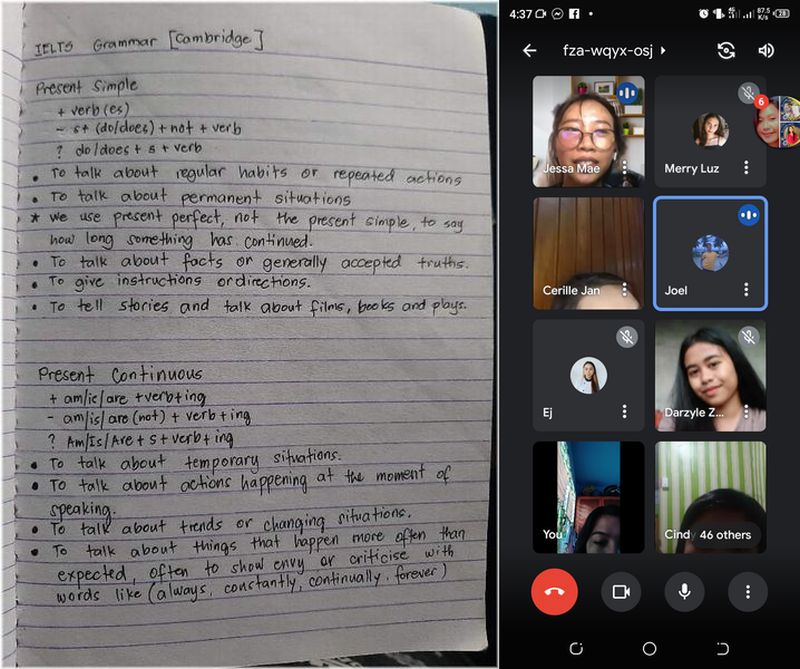 IELTS Grammar [Cambridge]
Present Simple
+ verb (es)
- s+ (do/does) + not + verb
? do/does + s + verb
• To talk about regular habits or repeated actions
• To talk about permanent situations
* We use present perfect, not the present simple, to say
how long something has continued.
• To talk about facts or generally accepted truths.
• To give instructions or directions.
• To tell stories and talk about films, books and plays.
Present Continuous
+ am/is/are + verb + ing
- am/is/are (not) + verb + ing
? Am/Is/Are + s + verb + ing
• To talk about temporary situations.
• To talk about actions happening at the moment of
speaking.
• To talk about trends or changing situations.
• To talk about things that happen more often than
expected, often to show envy or criticise with
words like (always, constantly, continually, forever)
4:37
87.5
K/s
28
fza-wqyx-osj
6
Jessa Mae
Merry Luz
Cerille Jan
Joel
Ej
Darzyle Z...
You
Cind
46 others